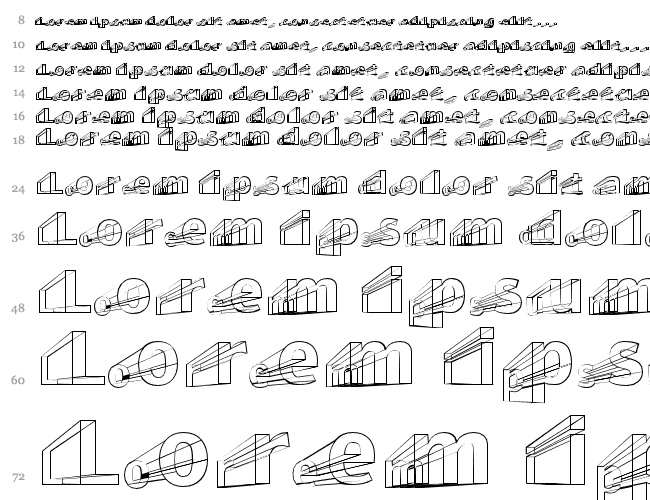 8 Lorem ipsum dolor sit amet, consectetuer adipiscing elit....
10 Lorem ipsum dolor sit amet, consectetuer adipiscing elit....
12 Lorem ipsum dolor sit amet, consectetuer adipi
14 Lorem ipsum dolor sit amet, consectetue
16 Lorem ipsum dolor sit amet, consecte
18 Lorem ipsum dolor sit amet, cons
24 Lorem ipsum dolor sit am
36 Lorem ipsum dol
48 Lorem ipsum
60 Lorem ips
72 Lorem ip